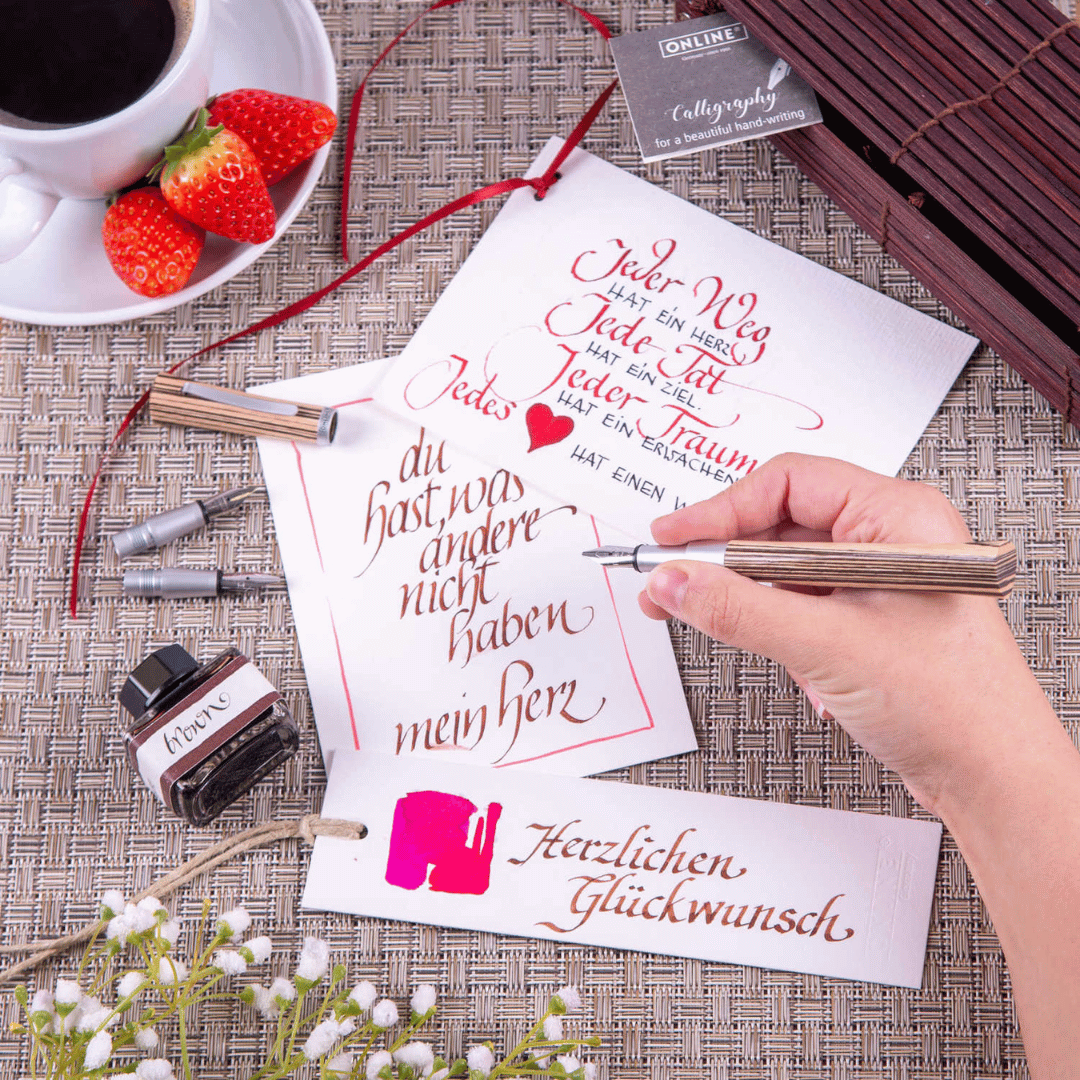 ONLINE®
Calligraphy
for a beautiful hand-writing
Jeder Weg
HAT EIN HERZ
Jede Tat
HAT EIN ZIEL.
Jeder Traum
HAT EIN ERWACHEN
Jedes
HAT EINEN
du
hast, was
andere
nicht
haben
mein herz
brown
Herzlichen
Glückwunsch